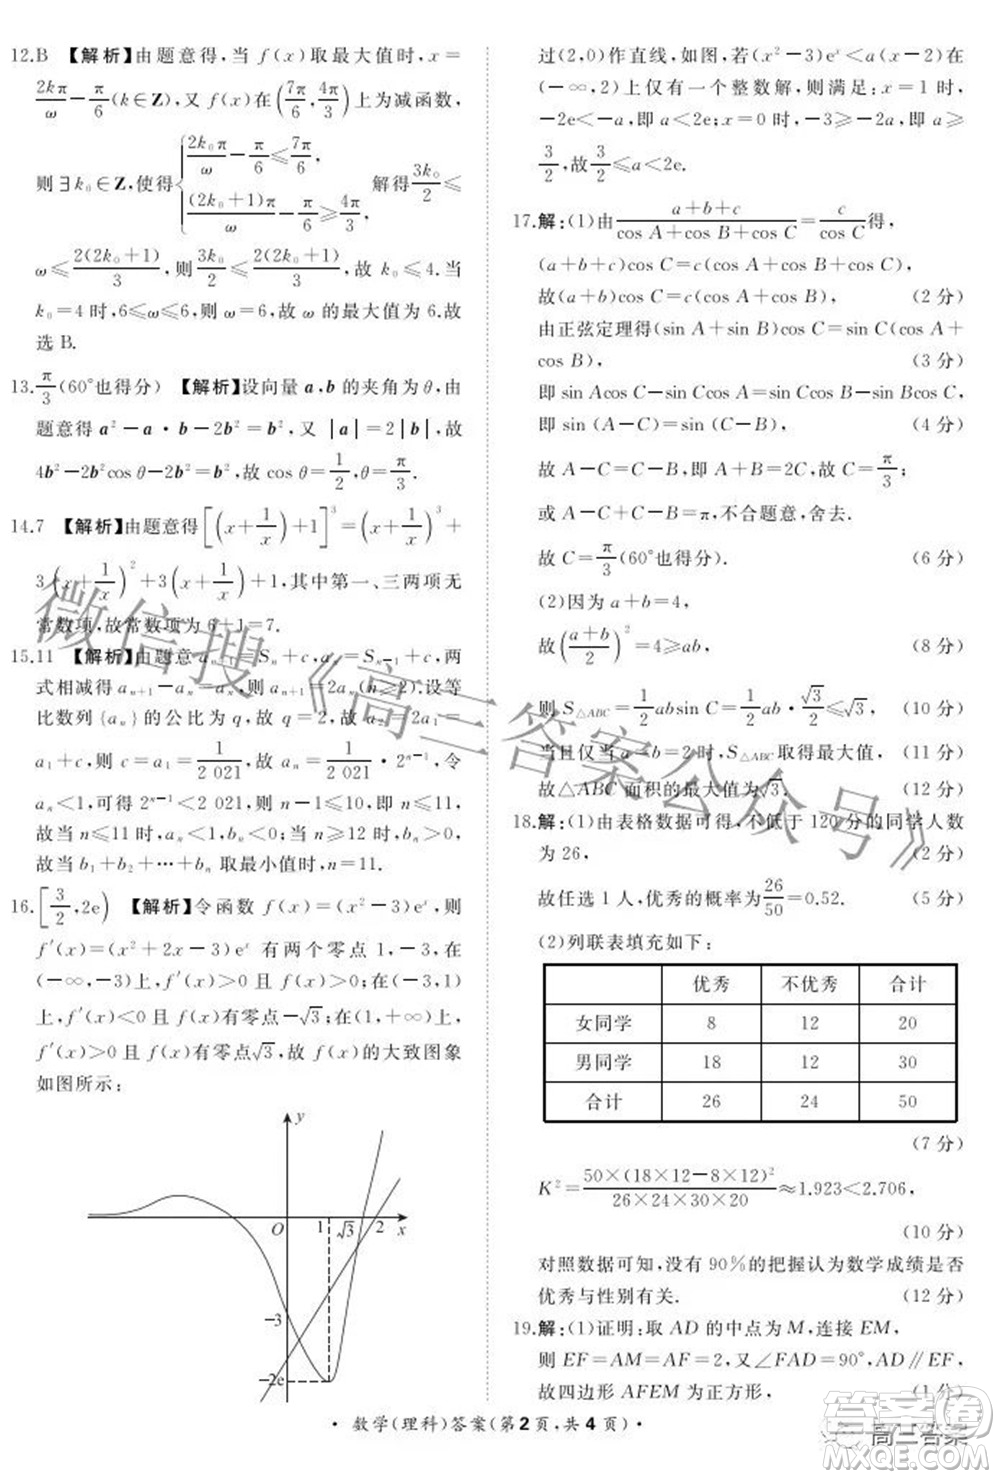 12.B 【解析】由题意得,当 f(x)取最大值时,x=
2kπ/ω−π/6(k∈Z),又 f(x)在(7π/6,4π/3)上为减函数,
则∃k₀∈Z,使得{2k₀π/ω−π/6≤7π/6, (2k₀+1)π/ω−π/6≥4π/3, 解得3k₀/2≤
ω≤2(2k₀+1)/3,则3k₀/2≤2(2k₀+1)/3,故 k₀≤4.当
k₀=4时,6≤ω≤6,故 ω=6,故 ω 的最大值为6.故
选 B.
13.π/3(60°也得分) 【解析】设向量 a,b 的夹角为θ,由
题意得 a²−a·b−2b²=b²,又 |a|=2|b|,故
4b²−2b²cos θ=2b²,故 cos θ=1/2,θ=π/3.
14.7 【解析】由题意得[(x+1/x)+1]³=(x+1/x)³+
3(x+1/x)²+3(x+1/x)+1,其中第一、三两项无
常数项,故常数项为6+1=7.
15.11 【解析】由题意 aₙ₊₁=Sₙ+c,aₙ=Sₙ₋₁+c,两
式相减得 aₙ₊₁−aₙ=aₙ,则 aₙ₊₁=2aₙ(n≥2).设等
比数列{aₙ}的公比为 q,故 q=2,故 a₂=2a₁=
a₁+c,则 c=a₁=1/2 021.故 aₙ=1/2 021·2ⁿ⁻¹,令
aₙ<1,可得 2ⁿ⁻¹<2 021,故 n−1≤10,即 n≤11,
故当 n≤11时,aₙ<1,bₙ<0;当 n>11时,bₙ>0.
故当 b₁+b₂+…+bₙ 取最小值时,n=11.
16.[3/2,2e) 【解析】令函数 f(x)=(x²−3)eˣ,则
f′(x)=(x²+2x−3)eˣ 有两个零点1,−3,在
(−∞,−3)上,f′(x)>0 且 f(x)>0;在(−3,1)
上,f′(x)<0 且 f(x)有零点−√3;在(1,+∞)上,
f′(x)>0 且 f(x)有零点√3,故 f(x)的大致图象
如图所示:
y
O 1 √3 2 x
−3
−2e
过(2,0)作直线,如图,若(x²−3)eˣ<a(x−2)在
(−∞,2)上仅有一个整数解,则满足:x=1时,
−2e<−a,即 a<2e;x=0时,−3≥−2a,即 a≥
3/2,故3/2≤a<2e.
17.解:(1)由(a+b+c)/(cos A+cos B+cos C)=c/cos C得,
(a+b+c)cos C=c(cos A+cos B+cos C),
故(a+b)cos C=c(cos A+cos B), (2分)
由正弦定理得(sin A+sin B)cos C=sin C(cos A+
cos B), (3分)
即 sin Acos C−sin Ccos A=sin Ccos B−sin Bcos C,
即 sin (A−C)=sin (C−B), (4分)
故 A−C=C−B,即 A+B=2C,故 C=π/3;
或 A−C+C−B=π,不合题意,舍去.
故 C=π/3(60°也得分). (6分)
(2)因为 a+b=4,
故((a+b)/2)²=4≥ab, (8分)
则 S△ABC=1/2absin C=1/2ab·√3/2≤√3, (10分)
当且仅当 a=b=2时,S△ABC取得最大值, (11分)
故△ABC 面积的最大值为√3. (12分)
18.解:(1)由表格数据可得,不低于120分的同学人数
为26, (2分)
故任选1人,优秀的概率为26/50=0.52. (5分)
(2)列联表填充如下:
优秀 不优秀 合计
女同学 8 12 20
男同学 18 12 30
合计 26 24 50
(7分)
K²=50×(18×12−8×12)²/(26×24×30×20)≈1.923<2.706,
(10分)
对照数据可知,没有90%的把握认为数学成绩是否
优秀与性别有关. (12分)
19.解:(1)证明:取 AD 的中点为 M,连接 EM,
则 EF=AM=AF=2,又∠FAD=90°,AD∥EF,
故四边形 AFEM 为正方形, (1分)
·数学(理科)答案(第2页,共4页)·
微信搜《高三答案公众号》
高三答案